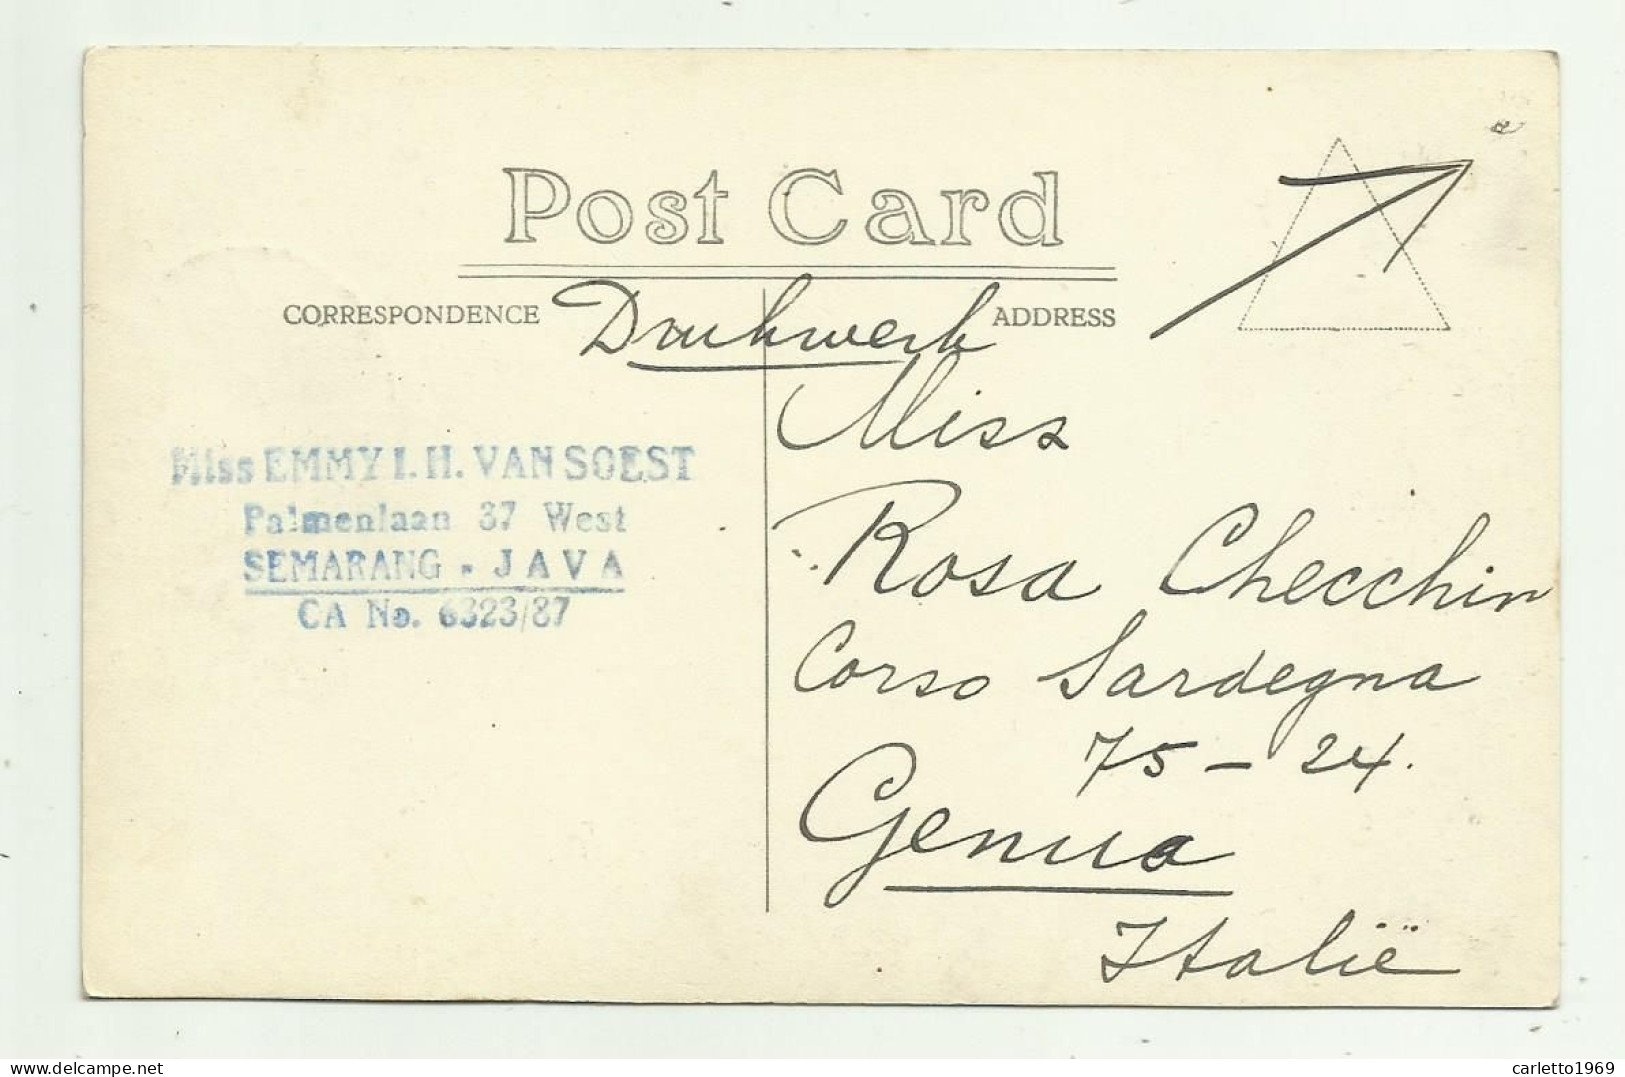 Post Card
CORRESPONDENCE
Drukwerk
ADDRESS
Miss EMMY I. H. VAN SOEST
Palmenlaan 37 West
SEMARANG - JAVA
CA No. 6323/37
Miss
Rosa Checchin
Corso Sardegna
75 - 24.
Genua
Italië
delcampe.net
carletto1969